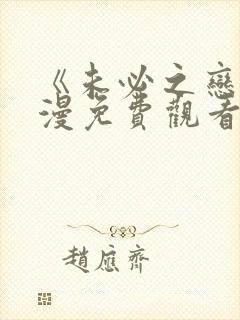 《未必之戀
漫免費觀看
趙應齊